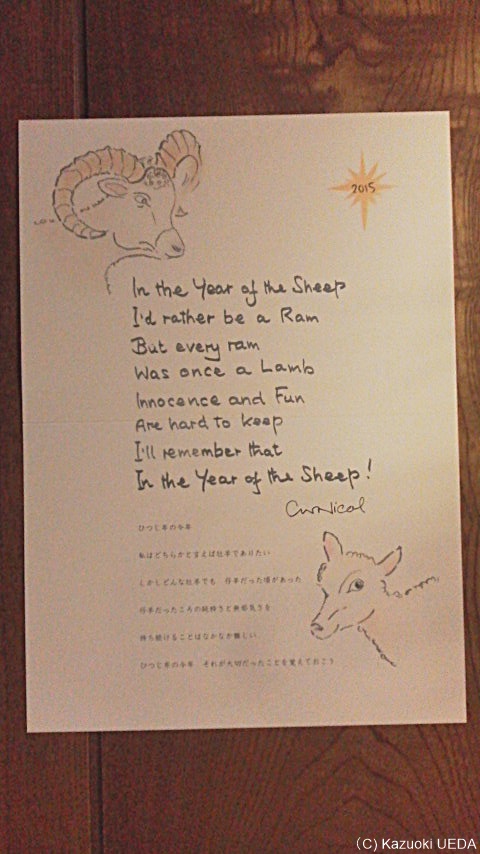 2015
In the Year of the Sheep
I'd rather be a Ram
But every ram
Was once a Lamb
Innocence and Fun
Are hard to keep
I'll remember that
In the Year of the Sheep!
CW Nicol
ひつじ年の今年
私はどちらかと言えば牡羊でありたい
しかしどんな牡羊でも 仔羊だった頃があった
仔羊だったころの純粋さと無邪気さを
持ち続けることはなかなか難しい
ひつじ年の今年 それが大切だったことを覚えておこう
(C) Kazuoki UEDA